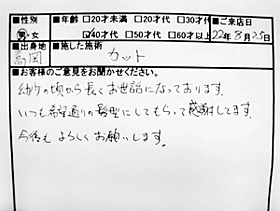 ■性別 ■年齢 □20才未満 □20才代 □30才代 ■ご来店日
男・女 ☑40才代 □50才代 □60才以上 22年8月25日
■出身地 ■施した施術
高岡 カット
■お客様のご意見をお聞かせください。
幼少の頃から長くお世話になっております。
いつも希望通りの髪型にしてもらって感謝してます。
今後もよろしくお願いします。